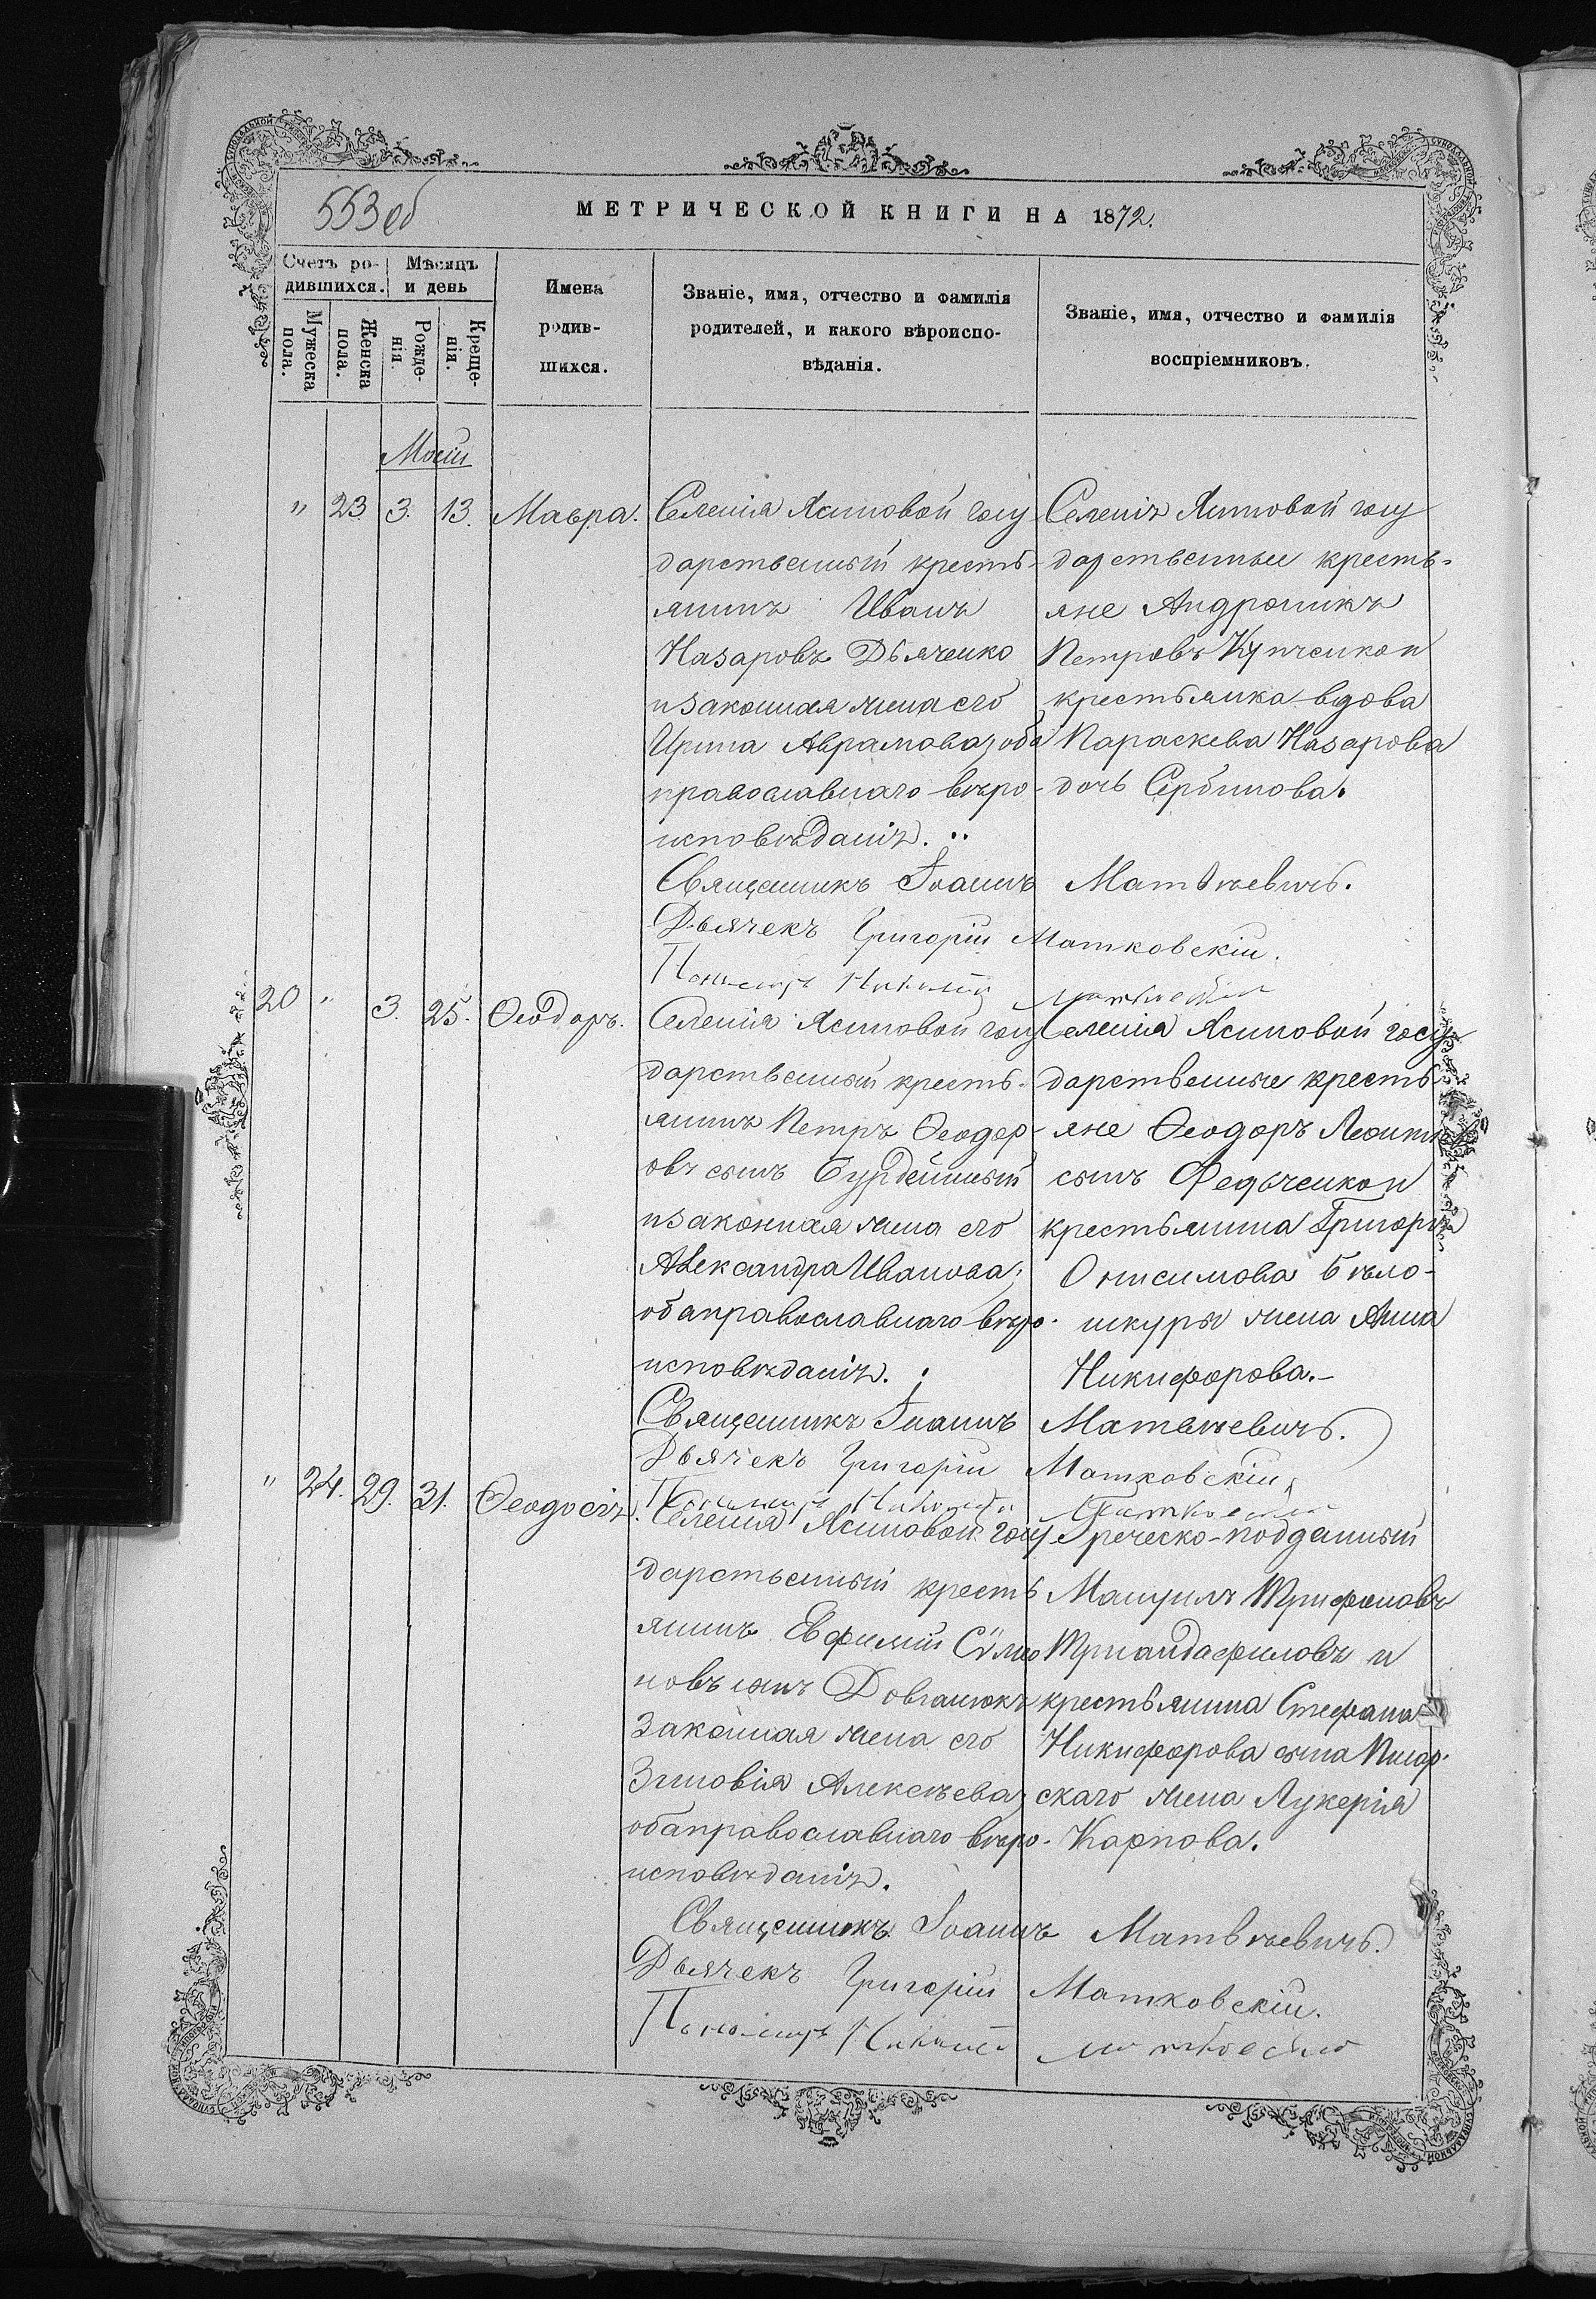 553 об
МЕТРИЧЕСКОЙ КНИГИ НА 1872.
Счетъ ро-
дившихся.
Мѣсяцъ
и день
Мужеска
пола.
Женска
пола.
Рожде-
нія.
Креще-
нія.
Имена
родив-
шихся.
Званіе, имя, отчество и фамилія
родителей, и какого вѣроиспо-
вѣданія.
Званіе, имя, отчество и фамилія
воспріемниковъ.
Май
" 23. 3. 13. Мавра.
Селенія Ясиновой госу
дарственный кресть-
янинъ Иванъ
Назаровъ Дьяченко
и законная жена его
Ирина Аврамова, оба
православнаго вѣро-
исповѣданія.
Селенія Ясиновой госу
дарственные кресть-
яне Андроникъ
Петровъ Купченко и
крестьянка вдова
Параскева Назарова
дочь Сербинова.
Священникъ Іоаннъ Матвѣевичъ.
Дьячекъ Григорій Матковскій.
Пономарь
20 " 3. 25. Ѳеодоръ.
Селенія Ясиновой госу
дарственный кресть-
янинъ Петръ Ѳеодор-
овъ сынъ Бурдейный
и законная жена его
Александра Иванова,
оба православнаго вѣро-
исповѣданія.
Селенія Ясиновой госу
дарственные кресть
яне Ѳеодоръ
сынъ Федченко и
крестьянина Григорія
Онисимова Бѣло-
шкуры жена Анна
Никифорова.-
Священникъ Іоаннъ Матвѣевичъ.
Дьячекъ Григорій Матковскій
Пономарь
" 24. 29. 31. Ѳеодосія.
Селенія Ясиновой госу
дарственный кресть
янинъ Евфимій Сѵмо
новъ сынъ Довганюкъ
законная жена его
Зиновія Алексѣева,
оба православнаго вѣро-
исповѣданія.
Греческо-подданный
Мануилъ Трифоновъ
Триандафиловъ и
крестьянина Стефана
Никифорова сына
скаго жена Лукерія
Карпова.
Священникъ Іоаннъ Матвѣевичъ.
Дьячекъ Григорій Матковскій.
Пономарь